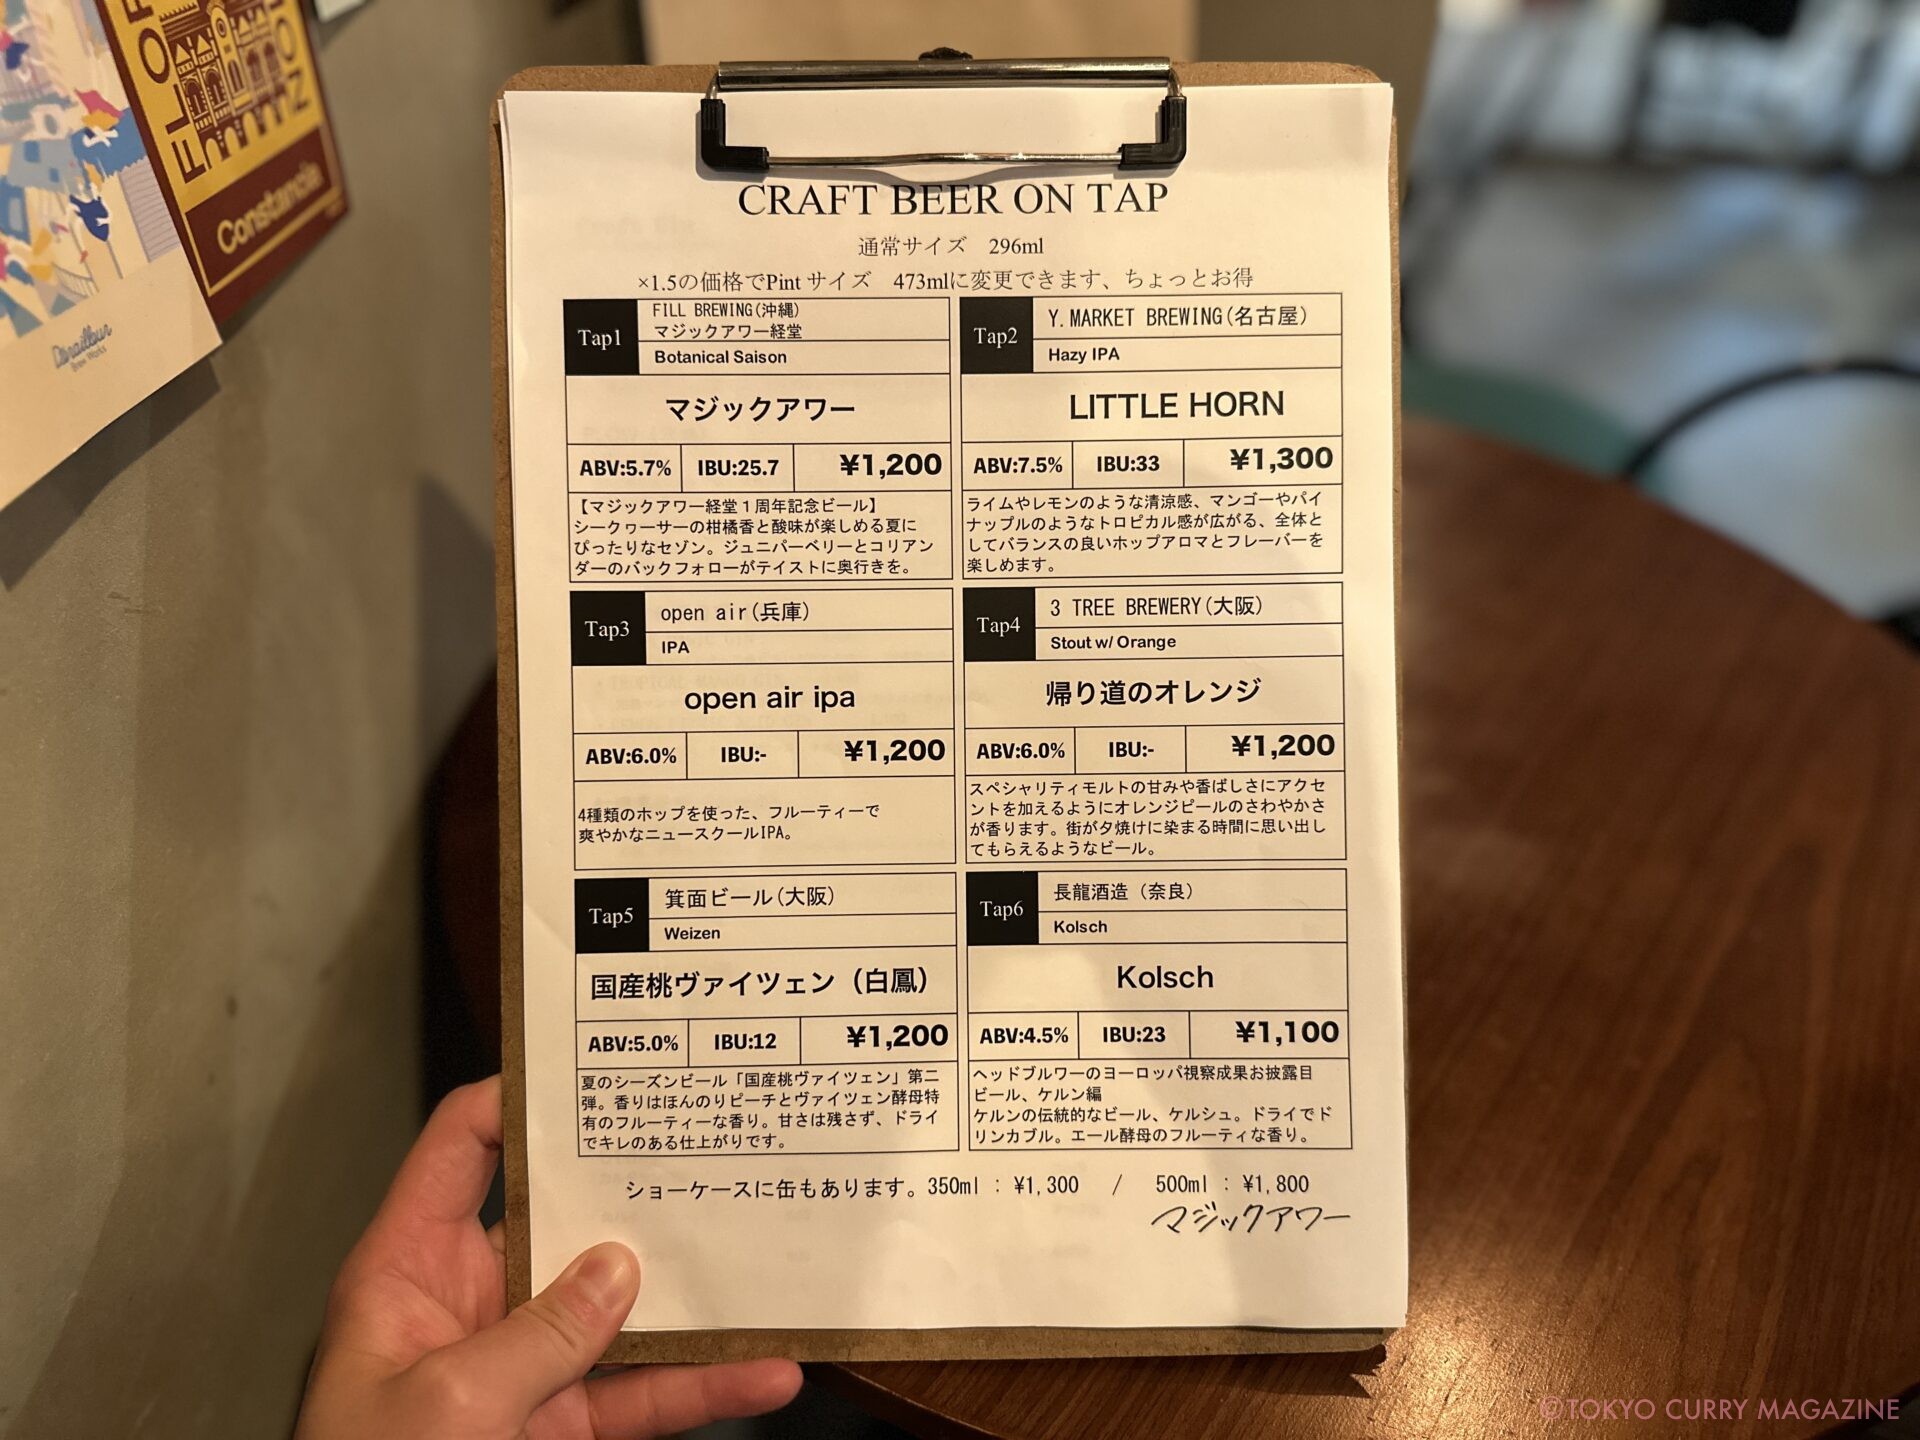 Constancia
CRAFT BEER ON TAP
通常サイズ 296ml
×1.5の価格でPint サイズ 473mlに変更できます、ちょっとお得
Tap1
FILL BREWING(沖縄)
マジックアワー経堂
Botanical Saison
マジックアワー
ABV:5.7% IBU:25.7 ¥1,200
【マジックアワー経堂１周年記念ビール】
シークヮーサーの柑橘香と酸味が楽しめる夏に
ぴったりなセゾン。ジュニパーベリーとコリアン
ダーのバックフォローがテイストに奥行きを。
Tap2
Y.MARKET BREWING(名古屋)
Hazy IPA
LITTLE HORN
ABV:7.5% IBU:33 ¥1,300
ライムやレモンのような清涼感、マンゴーやパイ
ナップルのようなトロピカル感が広がる、全体と
してバランスの良いホップアロマとフレーバーを
楽しめます。
Tap3
open air(兵庫)
IPA
open air ipa
ABV:6.0% IBU:- ¥1,200
4種類のホップを使った、フルーティーで
爽やかなニュースクールIPA。
Tap4
3 TREE BREWERY(大阪)
Stout w/ Orange
帰り道のオレンジ
ABV:6.0% IBU:- ¥1,200
スペシャリティモルトの甘みや香ばしさにアクセ
ントを加えるようにオレンジピールのさわやかさ
が香ります。街が夕焼けに染まる時間に思い出し
てもらえるようなビール。
Tap5
箕面ビール(大阪)
Weizen
国産桃ヴァイツェン（白鳳）
ABV:5.0% IBU:12 ¥1,200
夏のシーズンビール「国産桃ヴァイツェン」第二
弾。香りはほんのりピーチとヴァイツェン酵母特
有のフルーティーな香り。甘さは残さず、ドライ
でキレのある仕上がりです。
Tap6
長龍酒造（奈良）
Kolsch
Kolsch
ABV:4.5% IBU:23 ¥1,100
ヘッドブルワーのヨーロッパ視察成果お披露目
ビール、ケルン編
ケルンの伝統的なビール、ケルシュ。ドライでド
リンカブル。エール酵母のフルーティな香り。
ショーケースに缶もあります。350ml : ¥1,300 / 500ml : ¥1,800
マジックアワー
©TOKYO CURRY MAGAZINE